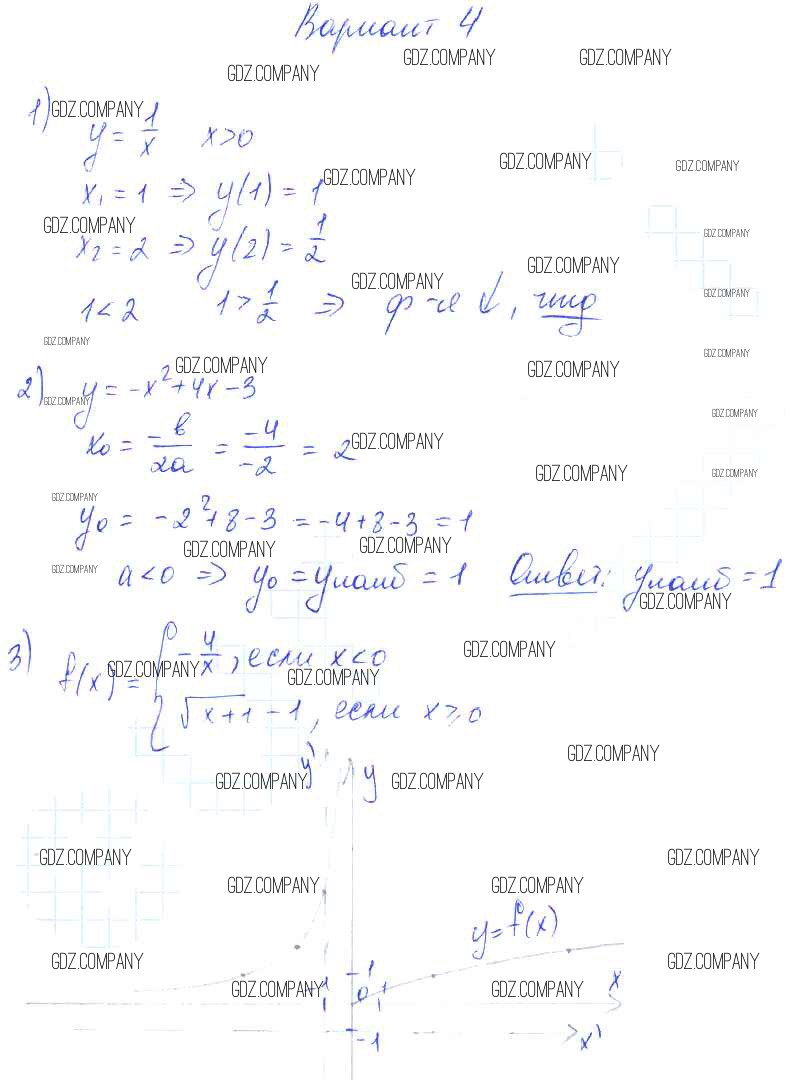 Вариант 4
GDZ.COMPANY GDZ.COMPANY GDZ.COMPANY
1) GDZ.COMPANY
y = 1/x x>0
GDZ.COMPANY GDZ.COMPANY
x₁ = 1 ⇒ y(1) = 1 GDZ.COMPANY
GDZ.COMPANY GDZ.COMPANY
x₂ = 2 ⇒ y(2) = 1/2
GDZ.COMPANY GDZ.COMPANY
1<2 1>1/2 ⇒ ф-я ↓, чтд
GDZ.COMPANY
GDZ.COMPANY GDZ.COMPANY
GDZ.COMPANY GDZ.COMPANY
2) y = -x²+4x-3
GDZ.COMPANY GDZ.COMPANY
x₀ = -в/2a = -4/-2 = 2 GDZ.COMPANY
GDZ.COMPANY GDZ.COMPANY
GDZ.COMPANY
y₀ = -2²+8-3 = -4+8-3 = 1
GDZ.COMPANY GDZ.COMPANY
GDZ.COMPANY
a<0 ⇒ y₀ = yнаиб = 1 Ответ: yнаиб = 1
GDZ.COMPANY
3) GDZ.COMPANY
f(x) = { -4/x, если x<0
GDZ.COMPANY GDZ.COMPANY
√x+1 -1, если x≥0
GDZ.COMPANY
y' y
GDZ.COMPANY GDZ.COMPANY
GDZ.COMPANY GDZ.COMPANY
GDZ.COMPANY GDZ.COMPANY
y=f(x)
GDZ.COMPANY GDZ.COMPANY
1
GDZ.COMPANY -1 0 1 GDZ.COMPANY x
-1 x'